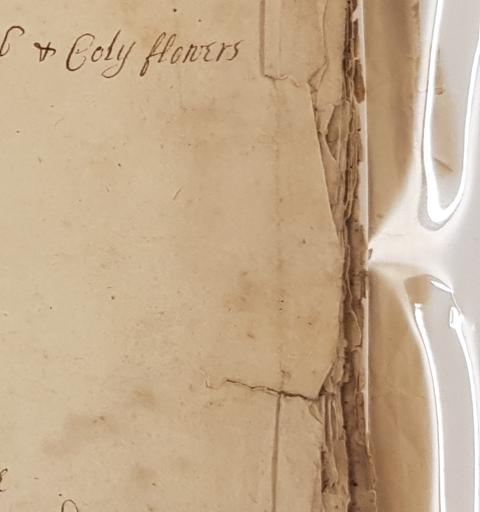 & Coly flowers